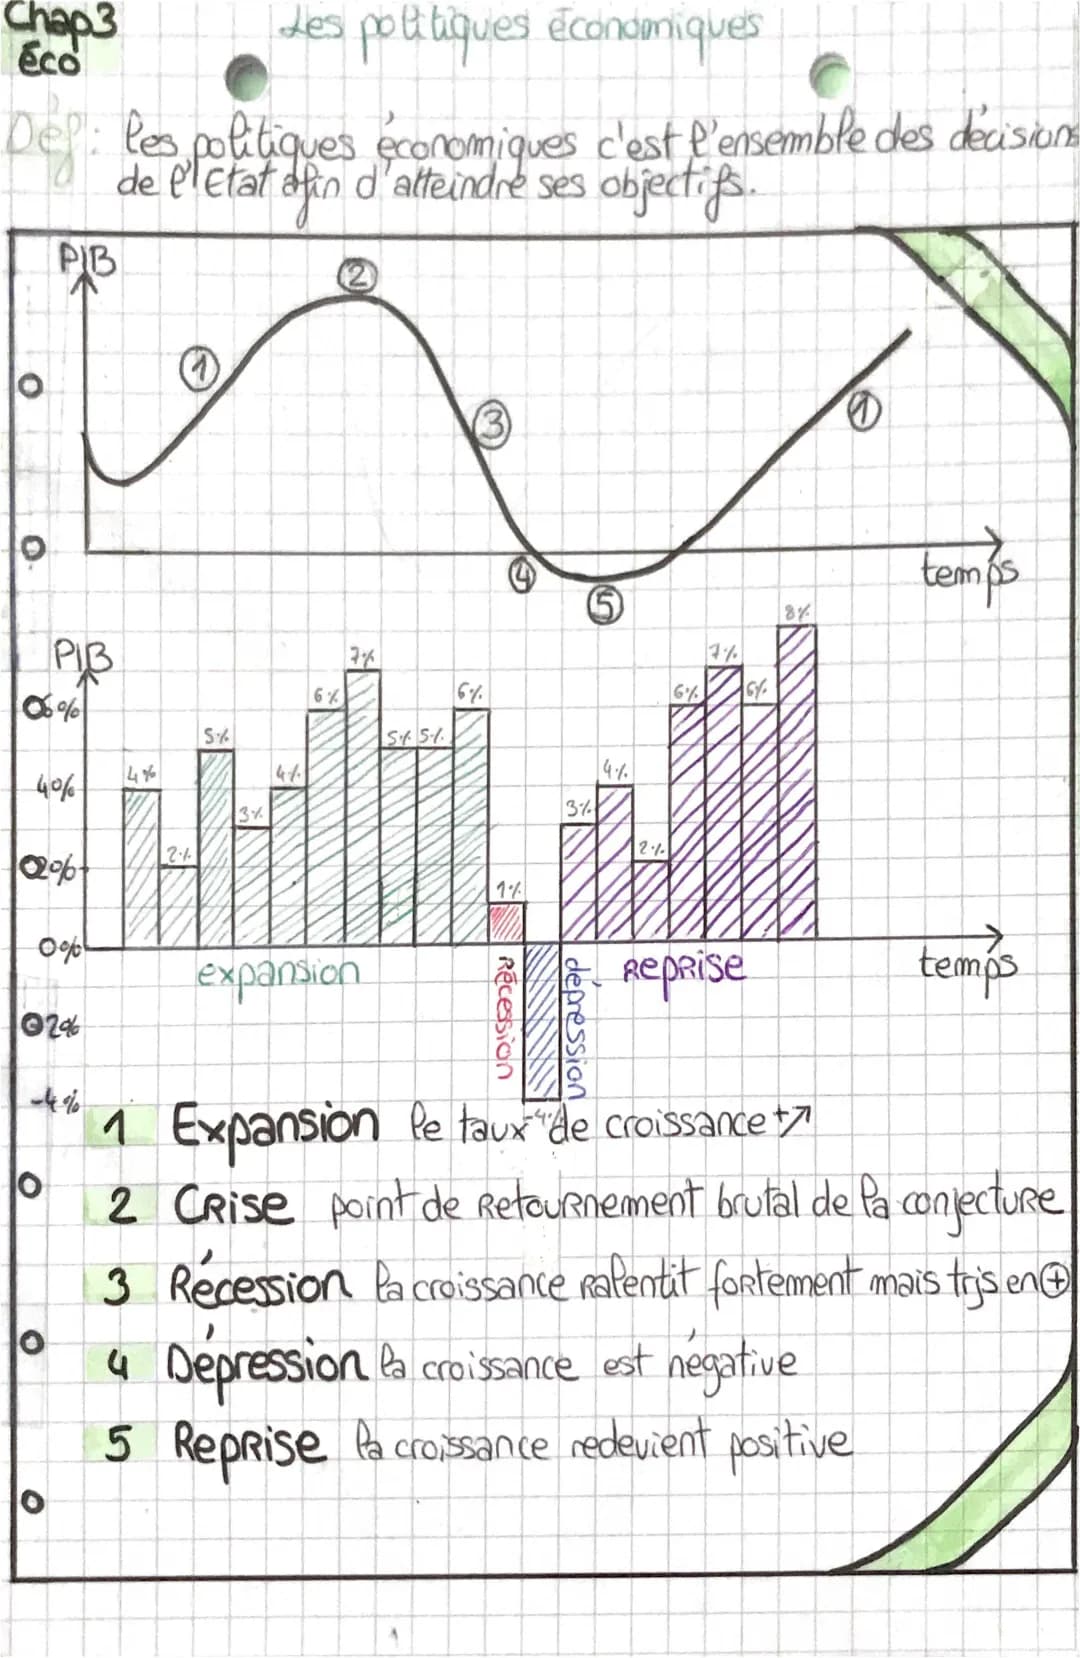 Chap3
éco
Les politiques économiques
Déf: les politiques économiques c'est l'ensemble des décisions
de l'Etat afin d'atteindre ses objectifs.
PIB
2
1
3
1
4
5
temps
PIB
8%
7%
7%
6%
6%
6%
6%
6%
5%
5%
5%
4%
4%
4%
4%
3%
3%
2%
2%
2%
1%
0%
expansion
Récession
dépression
Reprise
temps
-2%
-4%
-4%
1 Expansion le taux de croissance +↗
2 Crise point de retournement brutal de la conjecture
3 Récession la croissance ralentit fortement mais tjs en ⊕
4 Dépression la croissance est négative
5 Reprise la croissance redevient positive